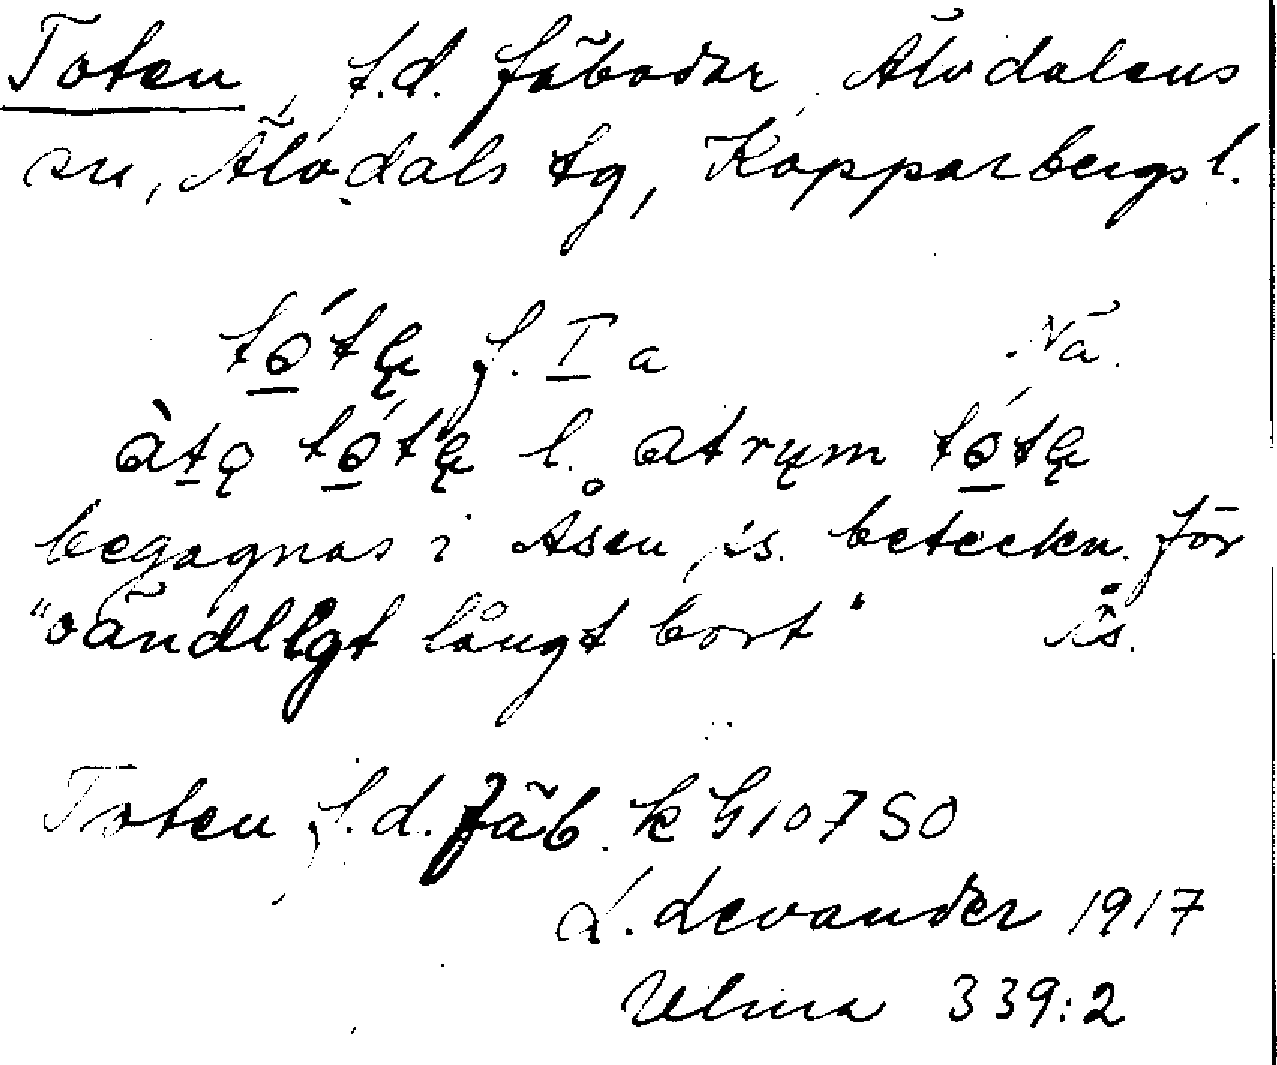 Toten, f.d. fäbodar, Älvdalens
sn, Älvdals tg, Kopparbergs l.
f. I a Nä.
l.
begagnas i Åsen ss. beteckn. för
"oändligt långt bort" Ås.
Toten f.d. fäb. k G10750
L. Levander 1917
Ulma 339:2